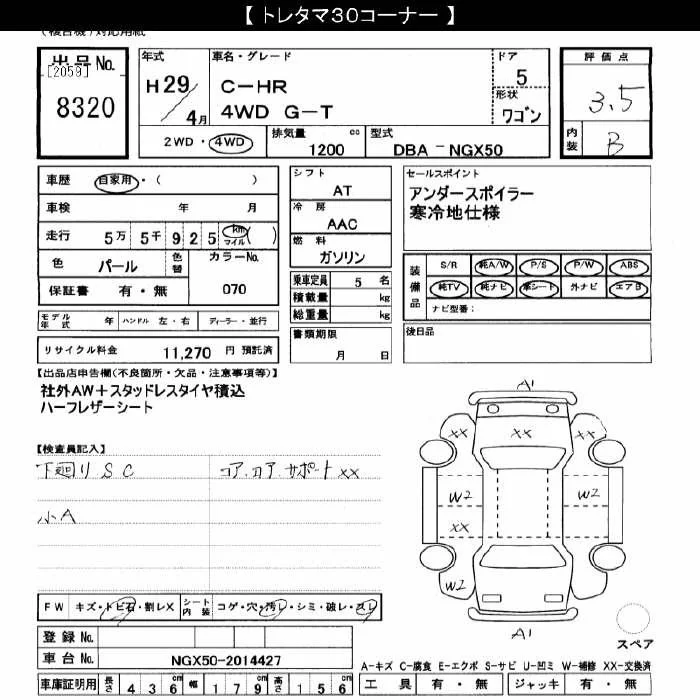 【 トレタマ30コーナー 】
(複合機)対応用紙
出品No.
[2059]
8320
年式
H 29/4月
車名・グレード
C-HR
4WD G-T
ドア
5
形状
ワゴン
評価点
3.5
内装
B
2WD・4WD
排気量 1200 cc
型式 DBA-NGX50
車歴 自家用・( )
車検 年 月
走行 5万 5千 9 2 5 km マイル ( )
色 パール 色替 カラーNo.
保証書 有・無 070
シフト
AT
冷房
AAC
燃料
ガソリン
乗車定員 5 名
積載量 kg
総重量 kg
セールスポイント
アンダースポイラー
寒冷地仕様
装備品
S/R 純A/W P/S P/W ABS
純TV 純ナビ 革シート 外ナビ エアB
ナビ型番:
モデル年式 年 ハンドル 左・右 ディーラー・並行
リサイクル料金 11,270 円 預託済
書類期限
月 日
後日品
【出品店申告欄(不良箇所・欠品・注意事項等)】
社外AW+スタッドレスタイヤ積込
ハーフレザーシート
【検査員記入】
下廻り S C
コア.ロア.サポート XX
小A
A1
XX XX XX
W2 W2
XX
W2
A1
スペア
FW キズ・トビ石・割レX シート内装 コゲ・穴・汚レ・シミ・破レ・スレ
登録No.
車台No. NGX50-2014427
車庫証明用 長さ 4 3 6 cm 幅 1 7 9 cm 高さ 1 5 6 cm
A-キズ C-腐食 E-エクボ S-サビ U-凹ミ W-補修 XX-交換済
工具 有・無 ジャッキ 有・無